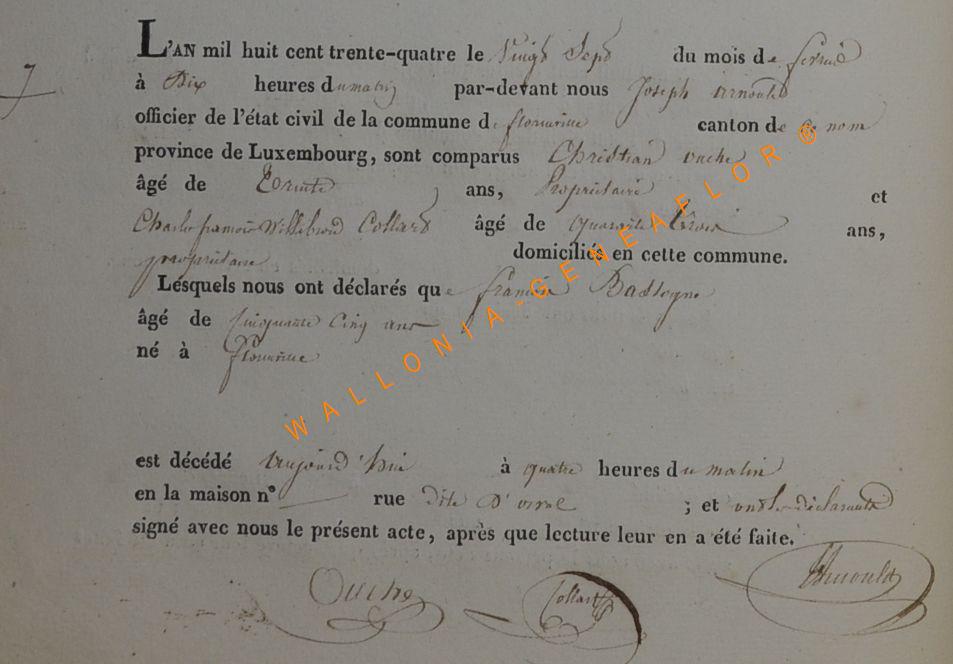 7
L'AN mil huit cent trente-quatre le Vingt Sept du mois de fevrié
à Dix heures du matin par-devant nous Joseph arnould
officier de l'état civil de la commune de florenville canton de ce nom
province de Luxembourg, sont comparus Christian ouche
âgé de trente ans, Propriétaire et
Charles francois Willibrord Collard âgé de quarante trois ans,
propriétaire domiciliés en cette commune.
Lésquels nous ont déclarés que francois Bastogne
âgé de Cinquante Cinq ans
né à florenville
est décédé aujourd'hui à quatre heures du matin
en la maison n° rue dite D' ; et ont les déclarants
signé avec nous le présent acte, après que lecture leur en a été faite.
Ouche Collart Arnould
WALLONIA-GENEAFLOR®